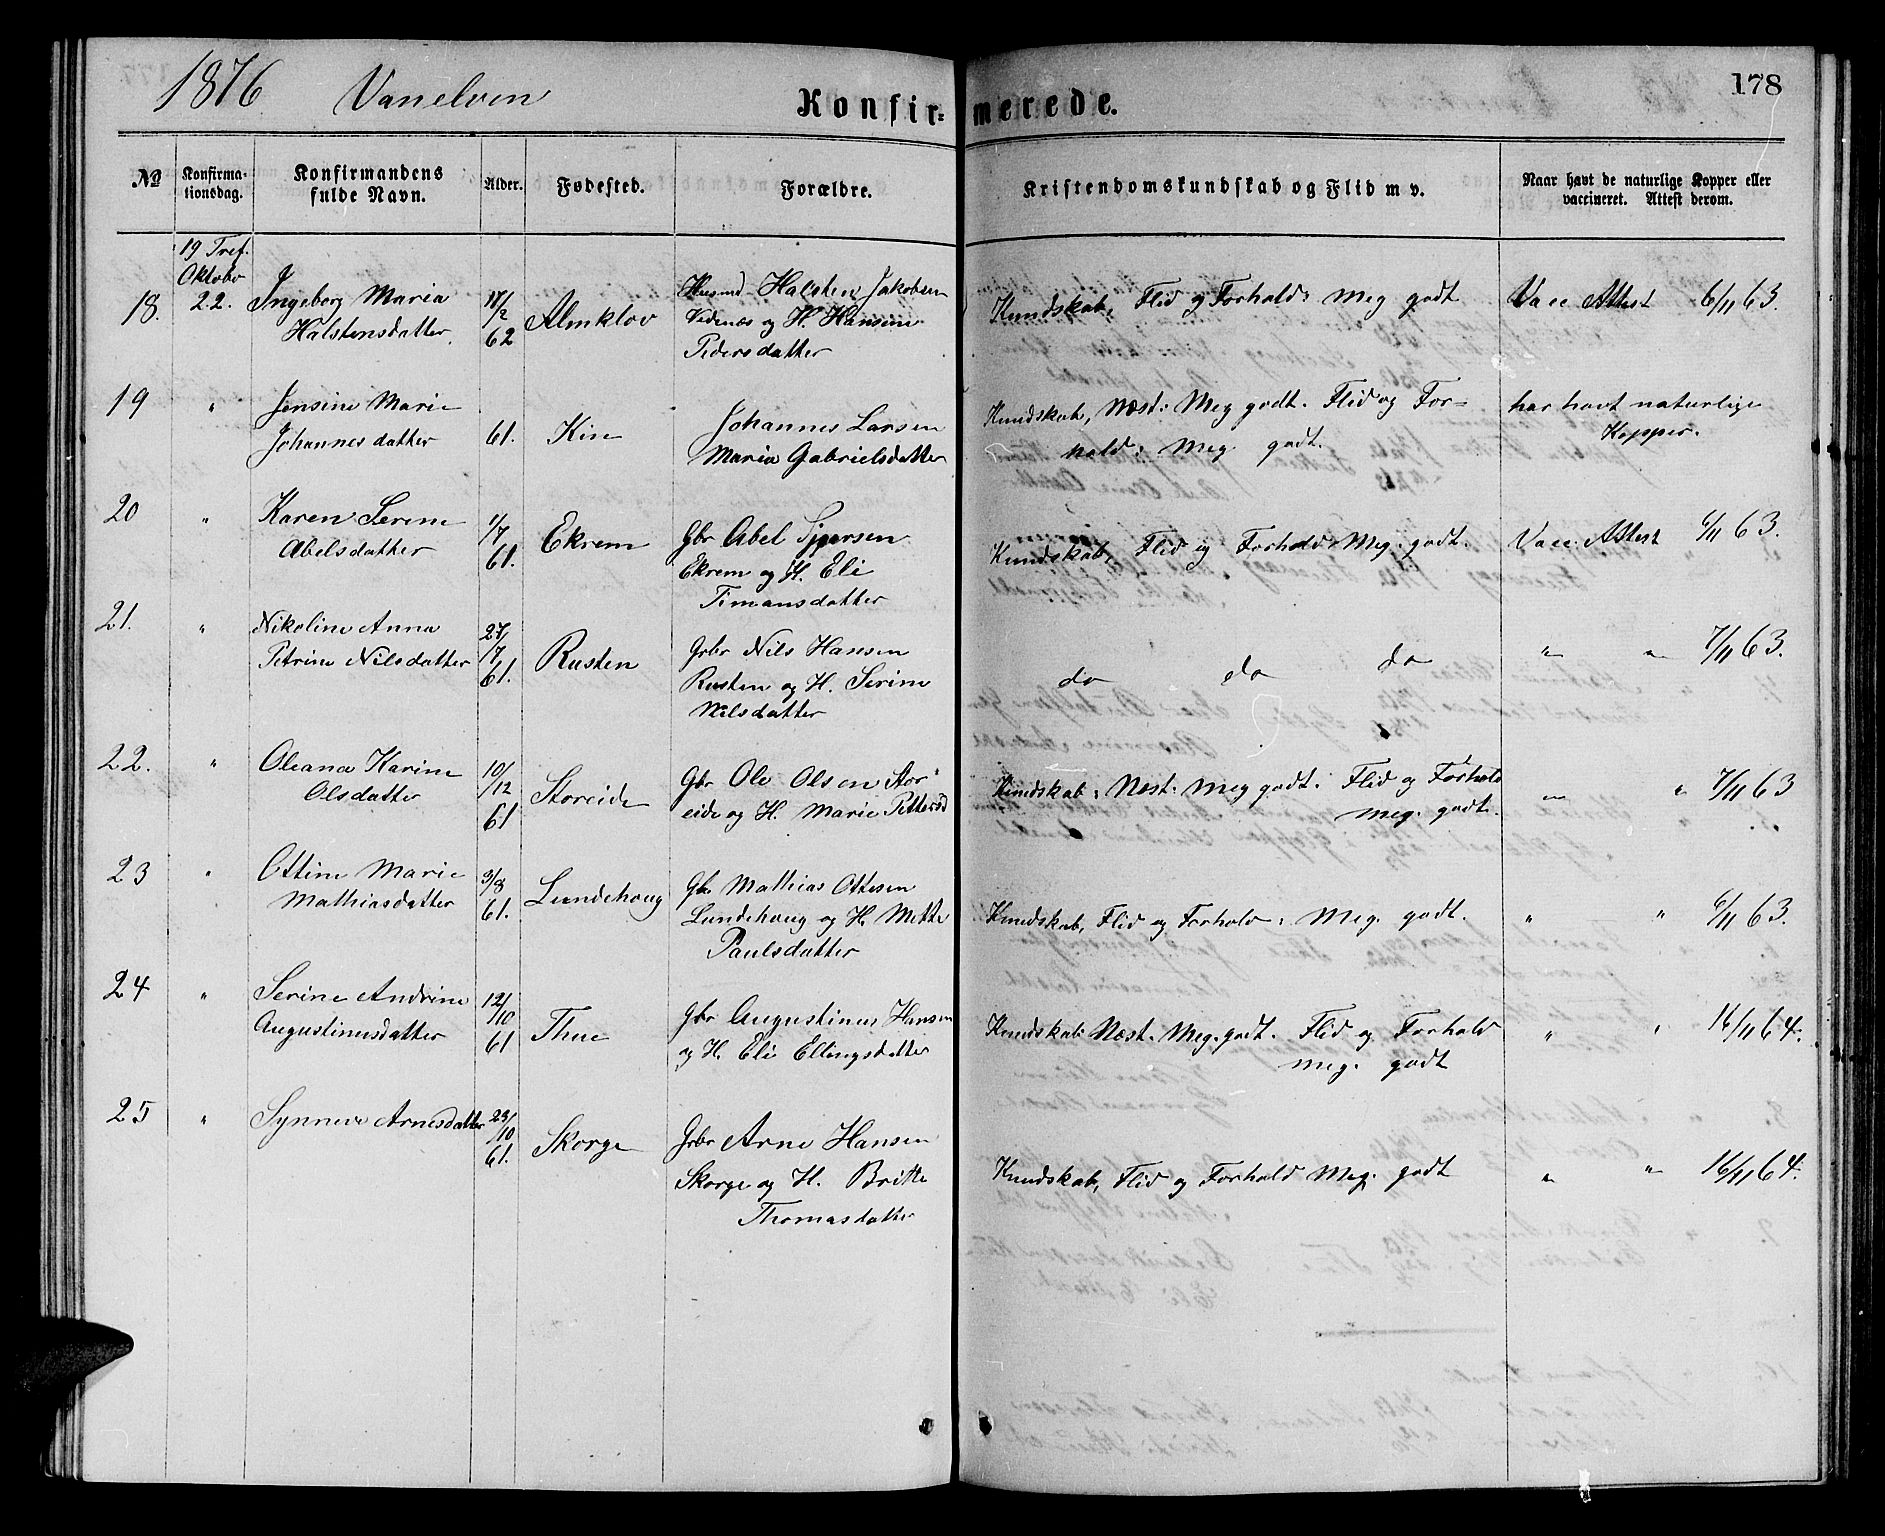 1876 Vanelven Konfirmerede. 178
№ Konfirmationsdag. Konfirmandens fulde Navn. Alder. Fødested. Forældre. Kristendomskundskab og Flid m v. Naar havt de naturlige Kopper eller vaccineret. Attest derom.
19 Tref.
Oktober
18. 22. Ingeborg Maria 17/2 Almklov Husmd Halsten Jakobsen Kundskab, Flid og Forhold: Meg godt Vacc Attest 6/11 63.
Halstensdatter. 62 Videnæs og H. Hansine
Pedersdatter
19 " Jensine Marie Johannes Larsen Kundskab, Næst. Meg godt. Flid og For- har havt naturlige
Johannesdatter 61. Kin Maria Gabrielsdatter hold: Meg. godt. Kopper.
20 " Karen Serine 1/7 Ekrem Gbr Abel Sjursen Kundskab, Flid og Forhold Meg. godt. Vacc. Attest 6/11 63.
Abelsdatter 61. Ekrem og H. Eli
Timansdatter
21. " Nikoline Anna 27/7 Rusten Gbr Nils Hansen do do do " " 7/11 63.
Petrine Nilsdatter 61. Rusten og H. Serine
Nilsdatter
22. " Oleana Karine 10/12 Storeide Gbr Ole Olsen Stor- Kundskab: Næst. Meg godt. Flid og Forhold " " 7/11 63
Olsdatter 61 eide og H. Marie Pettersd meg. godt.
23 " Ottine Marie 3/8 Lundehoug Gbr Mathias Ottesen Kundskab, Flid og Forhold: Meg. godt. " " 6/11 63.
Mathiasdatter 61. Lundehoug og H. Mette
Paulsdatter
24 " Serine Andrine 12/10 Thue Gbr Augustinus Hansen Kundskab: Næst. Meg. godt. Flid og Forhold " " 16/11 64.
Augustinusdatter 61 og H. Eli Ellingsdatter meg. godt
25 " Synneve Arnesdatter 23/10 Skorge Gbr Arne Hansen Kundskab, Flid og Forhold Meg. godt " " 16/11 64.
61. Skorge og H. Britte
Thomasdatter